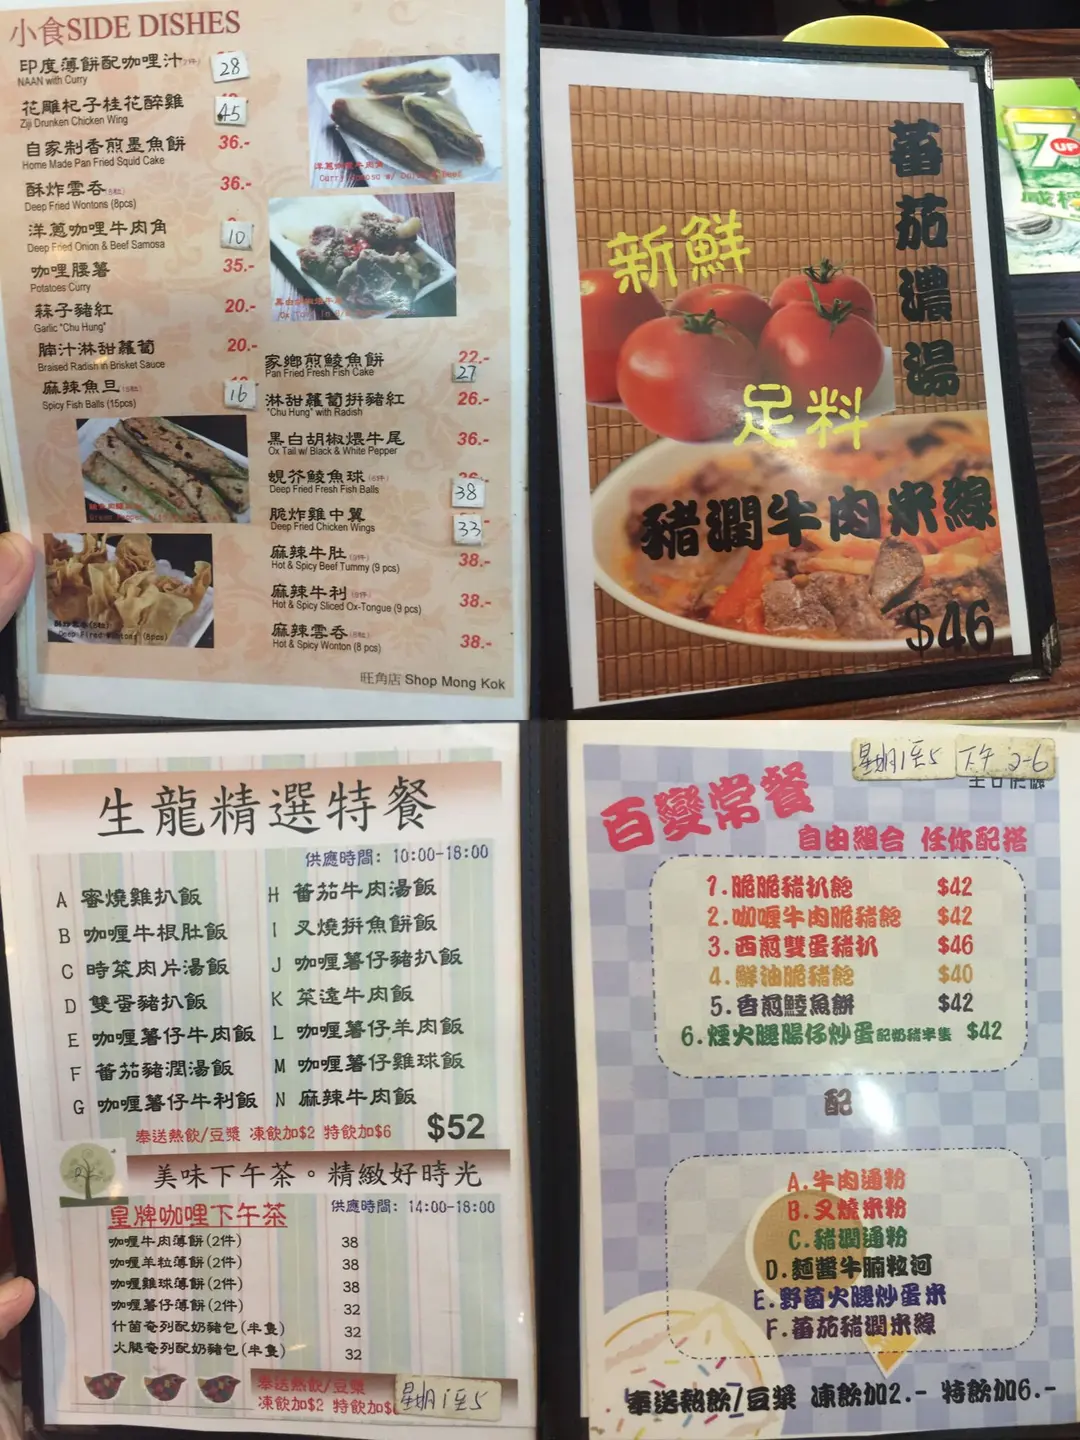 小食SIDE DISHES
印度薄餅配咖哩汁(2件) 28
NAAN with Curry
花雕杞子桂花醉雞 45
Ziji Drunken Chicken Wing
自家制香煎墨魚餅 36.-
Home Made Pan Fried Squid Cake
酥炸雲呑(8粒) 36.-
Deep Fried Wontons (8pcs)
洋蔥咖哩牛肉角 10
Deep Fried Onion & Beef Samosa
咖哩腰薯 35.-
Potatoes Curry
蒜子豬紅 20.-
Garlic "Chu Hung"
腩汁淋甜蘿蔔 20.-
Braised Radish in Brisket Sauce
麻辣魚旦(15粒) 16
Spicy Fish Balls (15pcs)
家鄉煎鯪魚餅 22.-
Pan Fried Fresh Fish Cake 27
淋甜蘿蔔拼豬紅 26.-
"Chu Hung" with Radish
黑白胡椒煨牛尾 36.-
Ox Tail w/ Black & White Pepper
蜆芥鯪魚球(6件) 38
Deep Fried Fresh Fish Balls
脆炸雞中翼 33
Deep Fried Chicken Wings
麻辣牛肚(9件) 38.-
Hot & Spicy Beef Tummy (9 pcs)
麻辣牛利(9件) 38.-
Hot & Spicy Sliced Ox-Tongue (9 pcs)
麻辣雲呑(8粒) 38.-
Hot & Spicy Wonton (8 pcs)
Deep Fired Wontong (8pcs)
旺角店 Shop Mong Kok
蕃茄濃湯
新鮮
足料
豬潤牛肉米線
$46
7
UP
生龍精選特餐
供應時間: 10:00-18:00
A 蜜燒雞扒飯
B 咖喱牛根肚飯
C 時菜肉片湯飯
D 雙蛋豬扒飯
E 咖喱薯仔牛肉飯
F 蕃茄豬潤湯飯
G 咖喱薯仔牛利飯
H 蕃茄牛肉湯飯
I 叉燒拼魚餅飯
J 咖喱薯仔豬扒飯
K 菜遠牛肉飯
L 咖喱薯仔羊肉飯
M 咖喱薯仔雞球飯
N 麻辣牛肉飯
奉送熱飲/豆漿 凍飲加$2 特飲加$6 $52
美味下午茶。精緻好時光
皇牌咖哩下午茶 供應時間: 14:00-18:00
咖喱牛肉薄餅(2件) 38
咖喱羊粒薄餅(2件) 38
咖喱雞球薄餅(2件) 38
咖喱薯仔薄餅(2件) 32
什菌奄列配奶豬包(半隻) 32
火腿奄列配奶豬包(半隻) 32
奉送熱飲/豆漿
凍飲加$2 特飲加$
星期1至5
星期1至5 下午 2-6
百變常餐
自由組合 任你配搭
1.脆脆豬扒飽 $42
2.咖喱牛肉脆豬飽 $42
3.西煎雙蛋豬扒 $46
4.鮮油脆豬飽 $40
5.香煎鯪魚餅 $42
6.煙火腿腸仔炒蛋配奶豬半隻 $42
配
A.牛肉通粉
B.叉燒米粉
C.豬潤通粉
D.麵醬牛腩粒河
E.野菌火腿炒蛋米
F.蕃茄豬潤米線
奉送熱飲/豆漿 凍飲加2.- 特飲加6.-